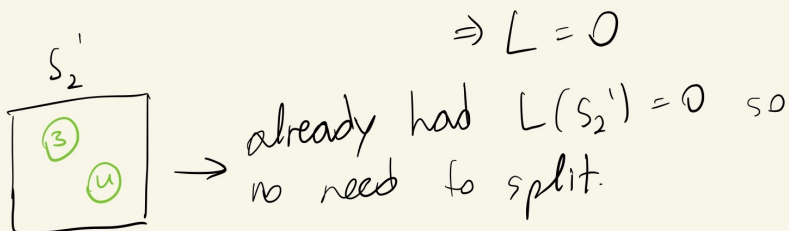 ⇒ L = 0
S₂'
3
4
→ already had L(S₂') = 0 so
no need to split.